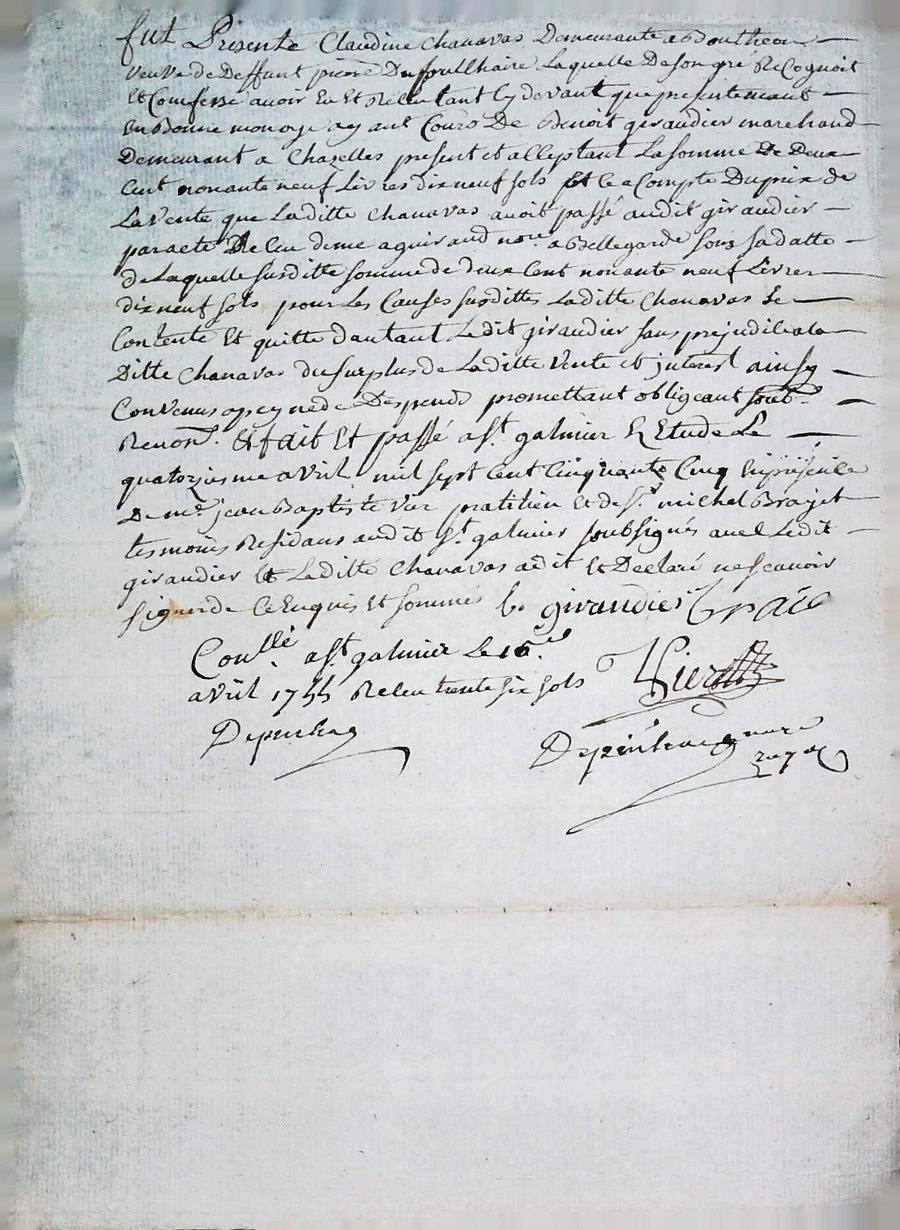 fut Presente Claudine Chanavas Demeurante a Bouthéon
veuve de Deffunt pierre Laquelle De son gre Recognoit
Et Confesse avoir Eu Et Receu tant Cy devant que presentement
En Bonne monoye ayant Cours De Benoit giraudier marchand
Demeurant a Chazelles present et acceptant La somme De Deux
Cent nonante neuf Livres dix neuf sols Et ce a Compte Du prix de
La Vente que Laditte Chanavas avoit passé audit giraudier
par acte Receu de me aguiraud nore. a Bellegarde sous sa datte
de Laquelle susditte somme de deux Cent nonante neuf Livres
dix neuf sols pour Les Causes susdittes Laditte Chanavas se
Contente Et quitte d'autant Ledit giraudier sans prejudice a la
Ditte Chanavas du surplus de Laditte Vente et interest ainsy
Convenus a peyne de Despends promettant obligeant soub.
Renon. Et fait Et passé a St. galmier En Etude Le
quatorziesme avril mil sept Cent Cinquante Cinq En presence
De me. jean Baptiste Vier praticien Et de Sr. michel Brajet
tesmoins Residans audit St. galmier soubsignés avec Ledit
giraudier Et Laditte Chanavas a dit Et Declaré ne scavoir
signer de Ce Enquis Et sommés b. giraudier
Conllé. a St. galmier Le 16e.
avril 1755 Receu trente six sols Vier